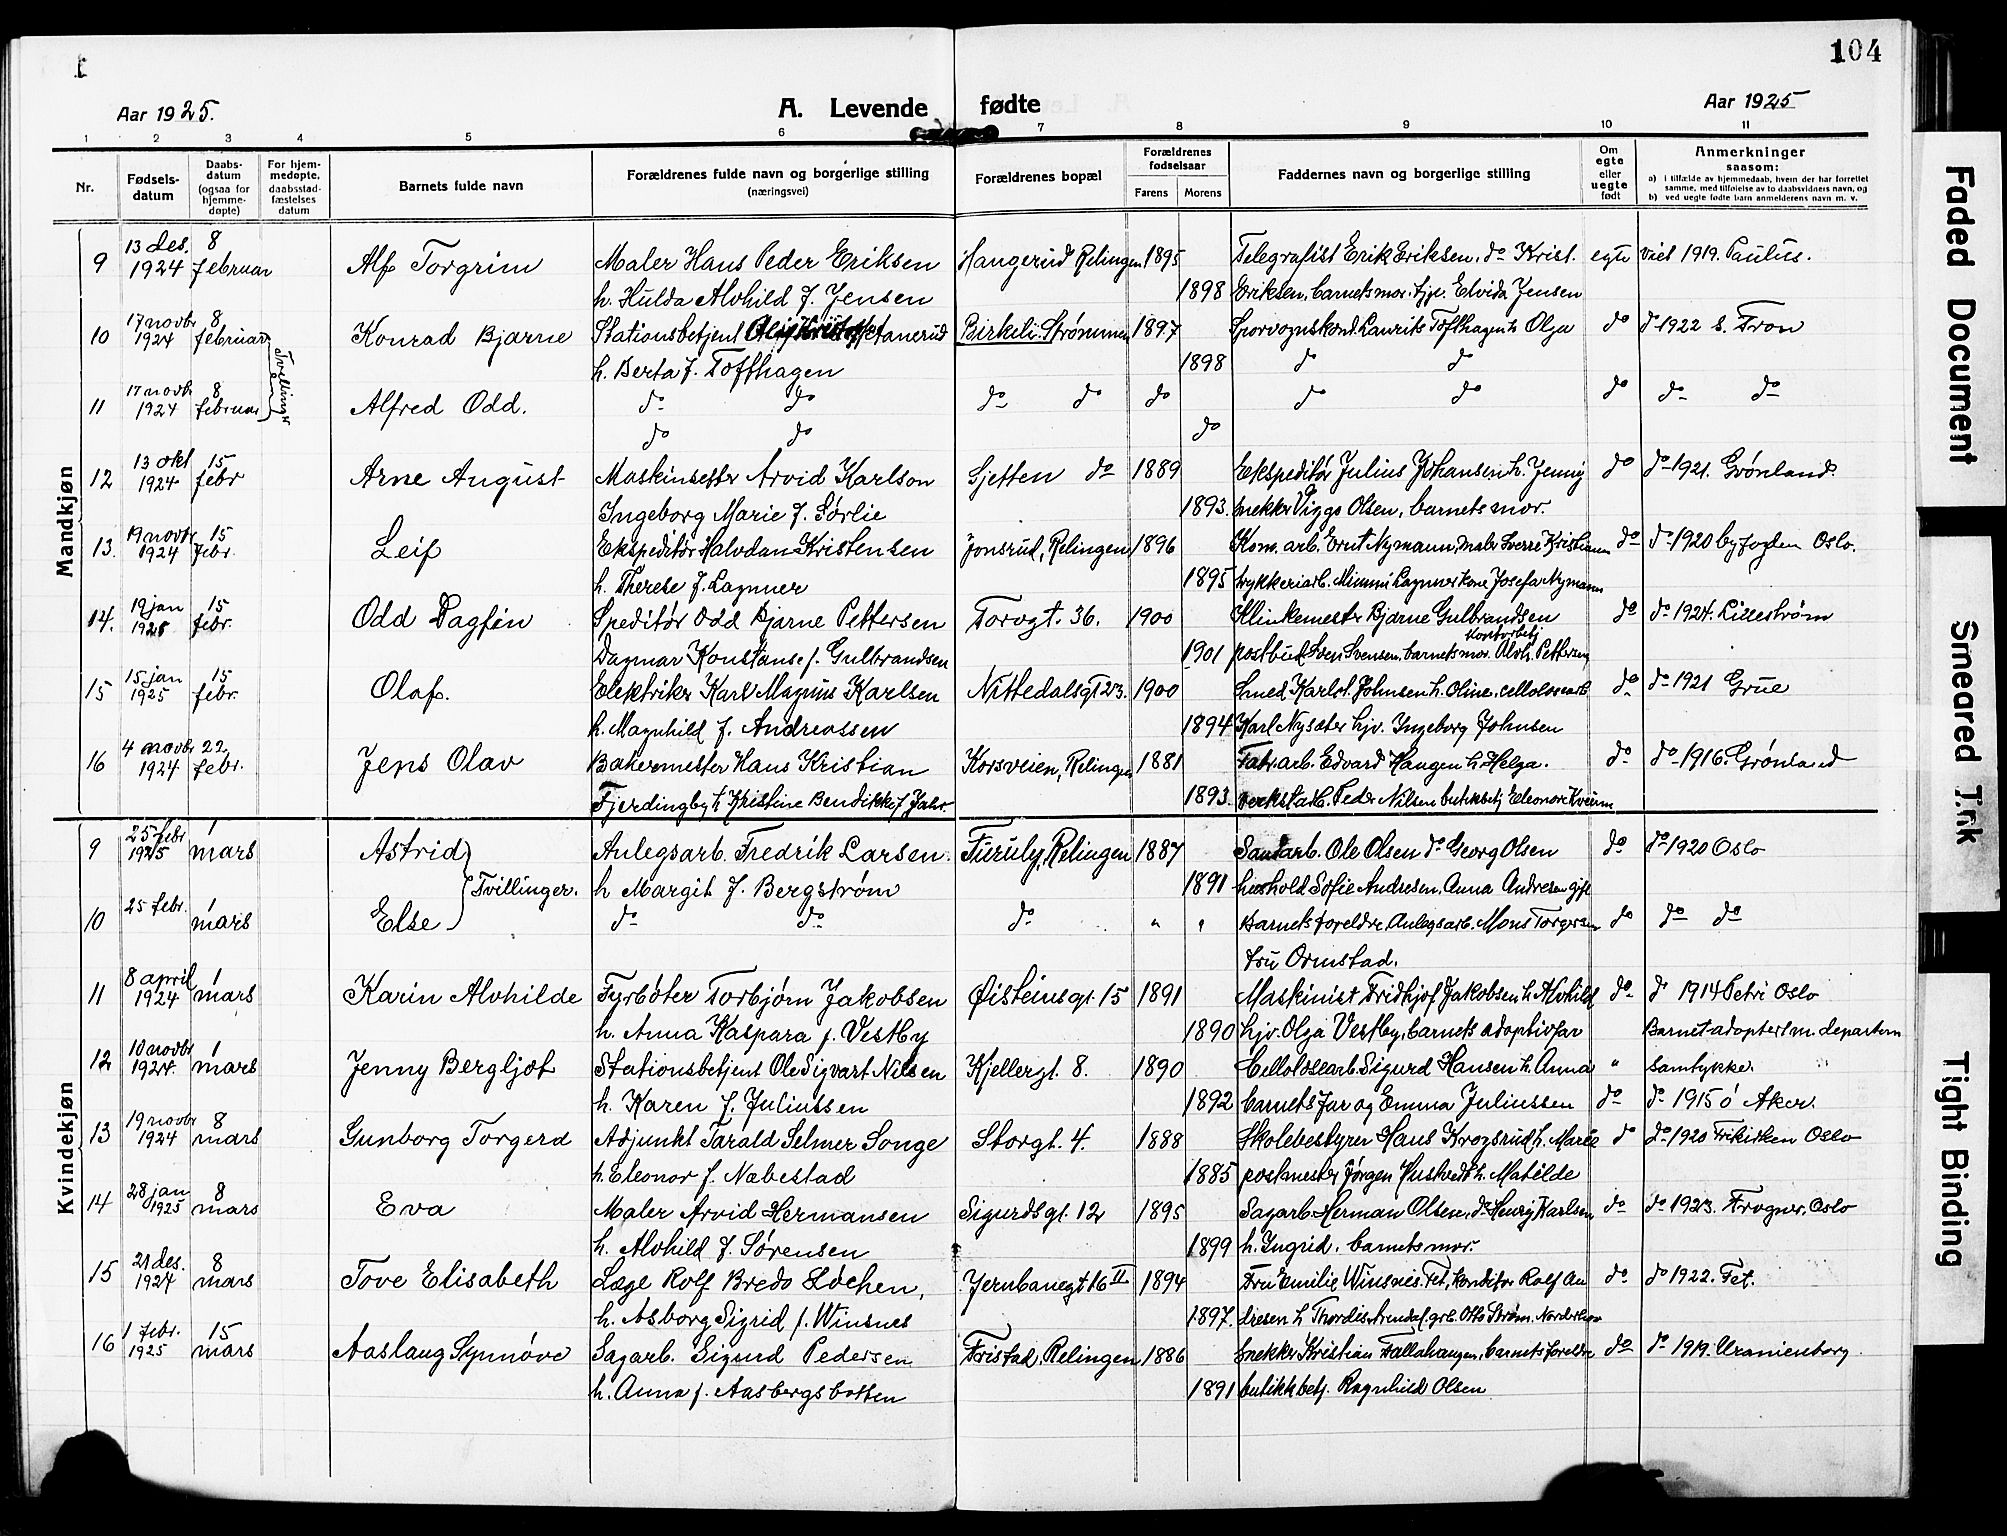 104
Aar 1925.
A. Levende fødte
Aar 1925
1 2 3 4 5 6 7 8 9 10 11
Nr.
Fødsels-
datum
Daabs-
datum
(ogsaa for
hjemme-
døpte)
For hjem-
medøpte,
daabsstad-
fæstelses
datum
Barnets fulde navn
Forældrenes fulde navn og borgerlige stilling
(næringsvei)
Forældrenes bopæl
Forældrenes
fødselsaar
Farens Morens
Faddernes navn og borgerlige stilling
Om
egte
eller
uegte
født
Anmerkninger
saasom:
a) i tilfælde av hjemmedaab, hvem der har forrettet
samme, med tilføielse av to daabsvidners navn, og
b) ved uegte fødte barn anmelderens navn m. v.
Mandkjøn
13 des. 8
9 1924 februar Alf Torgrim Maler Hans Peder Eriksen Hangerud Relingen 1895 Telegrafist Erik Eriksen, do Krist. egte viet 1919. Paulus.
h. Hulda Alvhild f. Jensen 1898 Eriksen, barnets mor, tjp. Elvida Jensen
17 novbr 8
10 1924 februar Konrad Bjarne Stationsbetjent Hetanerud Birkeli. Strømmen 1897 Sporvognskond. Laurits Tofthagen h. Olga do do 1922 S. Fron
Tvillinger
h. Berta f. Tofthagen 1898 do do
17 novbr 8
11 1924 februar Alfred Odd. do do do do do do do do do do
do do do
13 okt 15
12 1924 febr Arne August Maskinsetter Arvid Karlson Sjetten do 1889 Ekspeditør Julius Johansen h. Jenny do do 1921. Grønland.
Ingeborg Marie f. Sørlie 1893. snekker Viggo Olsen, barnets mor.
19 novbr 15
13. 1924 febr. Leif Ekspeditør Halvdan Kristensen Jonsrud, Relingen 1896 Kom. arb. Ernt Nymann, maler Sverre Kristiansen do do 1920 byfogden Oslo.
h. Therese f. Lagmer 1895 trykkeriarb. Mimmi Lagmer kone Josefa Nymann
19 jan 15
14. 1925 febr. Odd Dagfin Speditør Odd Bjarne Pettersen Torvgt. 36. 1900 Klinkemester Bjarne Gulbrandsen do do 1924. Lillestrøm
Kontorbetj
Dagmar Konstanse f. Gulbrandsen 1901 postbud Sven Svensen, barnets mor. Alvh. Pettersen
15 jan 15
15 1925 febr. Olaf. Elektriker Karl Magnus Karlsen Nittedalsgt 23. 1900 Smed Karl Johnsen h. Oline, cellolosearb. do do 1921 Grue
h. Magnhild f. Andreassen 1894 Karl Nysæter hjv. Ingeborg Johnsen
4 novbr 22
16 1924 febr. Jens Olav Bakermester Hans Kristian Korsveien, Relingen 1881 Fabr. arb. Edvard Haugen h. Helga. do do 1916. Grønland
Fjerdingby h. Kristine Bendikke f. 1893. verkstarb. Peder Nilsen butikbetj Eleonore Kveim
Kvindekjøn
25 febr 1
9 1925 mars Astrid Anlegsarb. Fredrik Larsen. Furuly, Relingen 1887 Sandarb. Ole Olsen do Georg Olsen do do 1920 Oslo
Tvillinger. h Margit f. Bergstrøm 1891 hushold Sofie Andresen, Anna Andresen gift
25 febr. 1
10 mars Else do do do " " Barnets foreldre, Anlegsarb. Mons Torgersen do do do
fru Ormstad.
8 april 1
11 1924 mars Karin Alvhilde Fyrbøter Torbjørn Jakobsen Øisteinsgt. 15 1891 Maskinist Fridtjof Jakobsen h. Alvhild do do 1914 Petri Oslo
h. Anna Kaspara f. Vestby 1890 hjv. Olga Vestby, barnets adoptivfar Barnet adoptert m. departem
10 novbr 1
12 1924. mars Jenny Bergljot Stationsbetjent Ole Sigvart Nilsen Kjellergt. 8. 1890 Cellolosearb. Sigurd Hansen h. Anna " samtykke.
h. Karen f. Juliussen 1892 barnets far og Emma Juliussen do do 1915 Ø Aker.
19 novbr 8
13 1924 mars Gunborg Torgerd Adjunkt Tarald Selmer Songe Storgt. 4. 1888 Skolebestyrer Hans Krogsrud h. Marie do do 1920 Frikirken Oslo
h. Eleonor f. Næbestad 1885 postmester Jørgen Hustvedt h. Matilde
28 jan 8
14 1925 mars Eva Maler Arvid Hermansen Sigurdsgt. 12 1895 Sagarb. Herman Olsen, do Henry Karlsen do do 1923. Frogner, Oslo
h. Alvhild f. Sørensen 1899 h. Ingrid, barnets mor.
21 des. 8
15 1924 mars Tove Elisabeth Læge Rolf Bredo Løchen, Jernbanegt 16 II 1894 Fru Emilie Winsnes. Fet, konditor Rolf An do do 1922. Fet.
h. Asborg Sigrid f. Winsnes 1897. dresen h Thordis, Arendal, grb. Otto Strøm, Norderhov
1 febr. 15
16 1925 mars Aaslaug Synnøve Sagarb. Sigurd Pedersen Fristad, Relingen 1886 Snekker Kristian Fallahaugen, barnets foreldre do do 1919. Uranienborg
h. Anna f. Aasbergsbotten 1891 butikkbetj. Ragnhild Olsen
Faded Document
Smeared Ink
Tight Binding